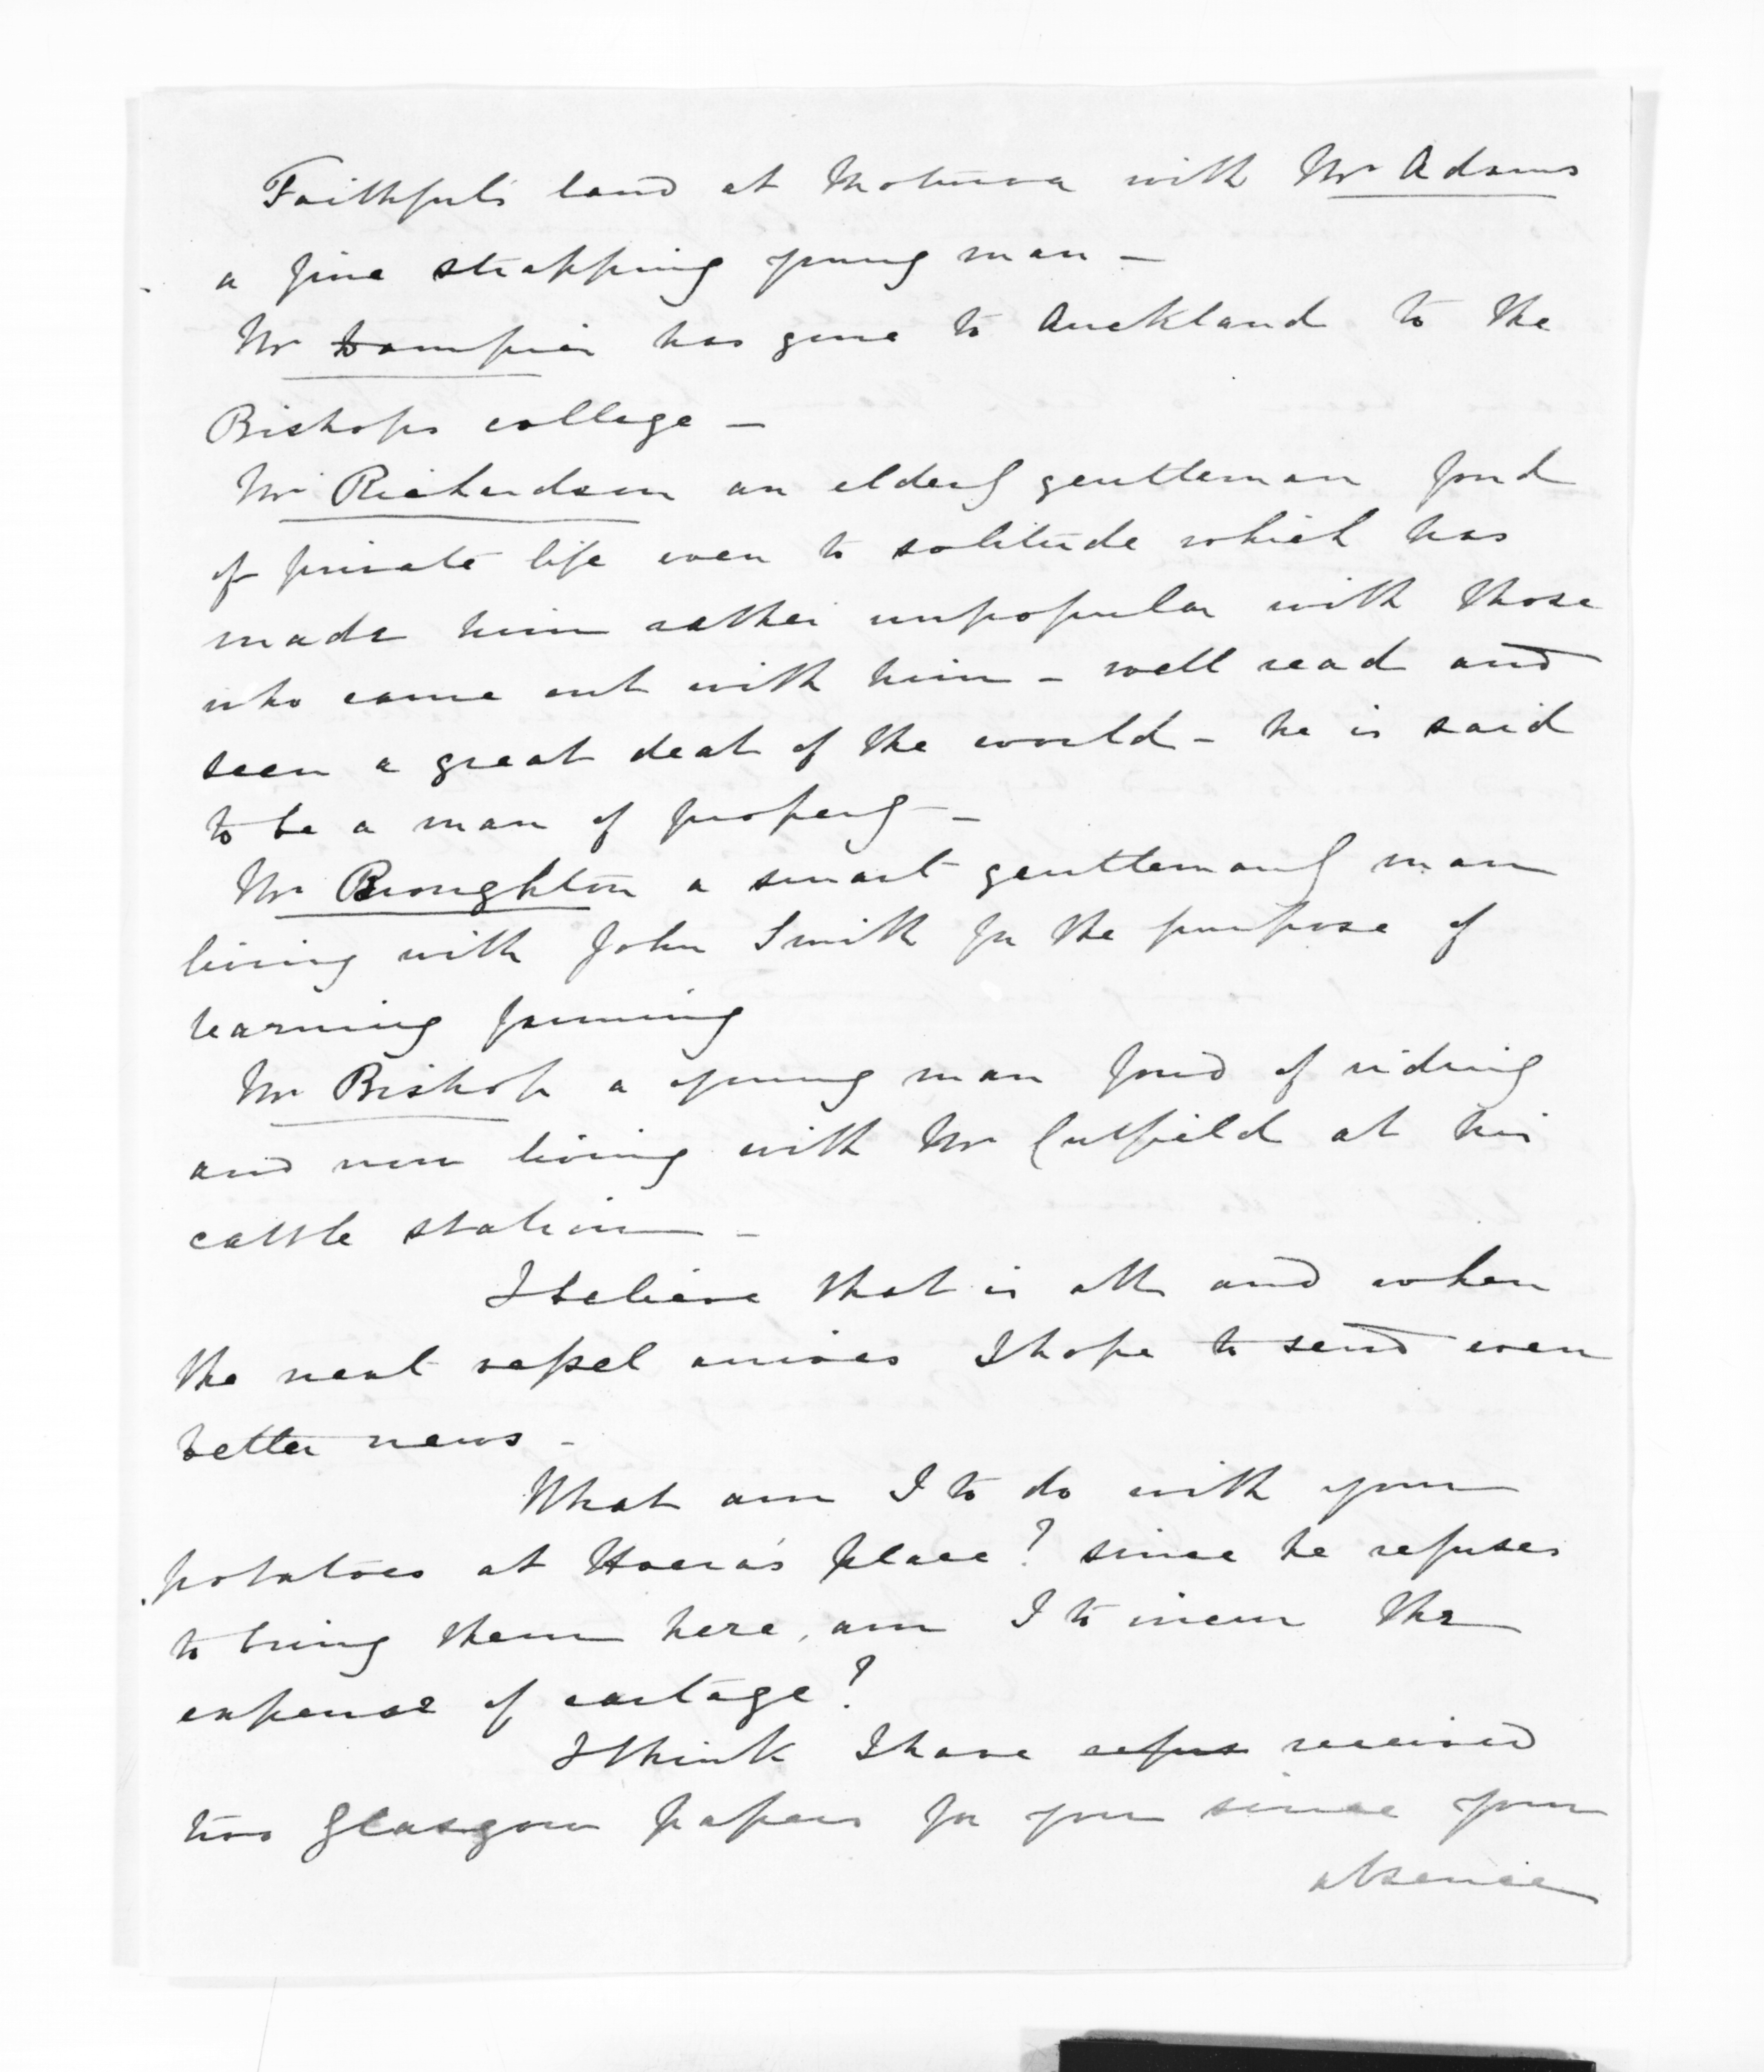 Faithful's land at Moturoa with Mr Adams
a fine strapping young man —
Mr Dampier has gone to Auckland to the
Bishops college —
Mr Richardson an elderly gentleman fond
of private life even to solitude which has
made him rather unpopular with those
who came out with him – well read and
seen a great deal of the world – he is said
to be a man of property —
Mr Broughton a smart gentlemanly man
living with John Smith for the purpose of
learning farming
Mr Bishop a young man fond of riding
and now living with Mr Cutfield at his
cattle station —
I believe that is all and when
the next vessel arrives I hope to send even
better news –
What am I to do with your
potatoes at Hoera's place? since he refuses
to bring them here, am I to incur the
expense of cartage?
I think I have refus received
two Glasgow papers for you since your
absence